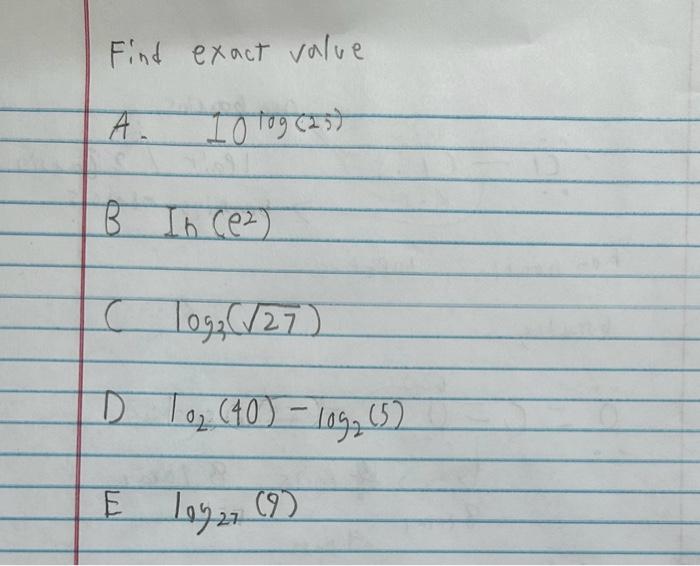 Find exact value
A. 10^log(25)
B In (e²)
C log₃(√27)
D lo₂ (40) - log₂ (5)
E log₂₇ (9)